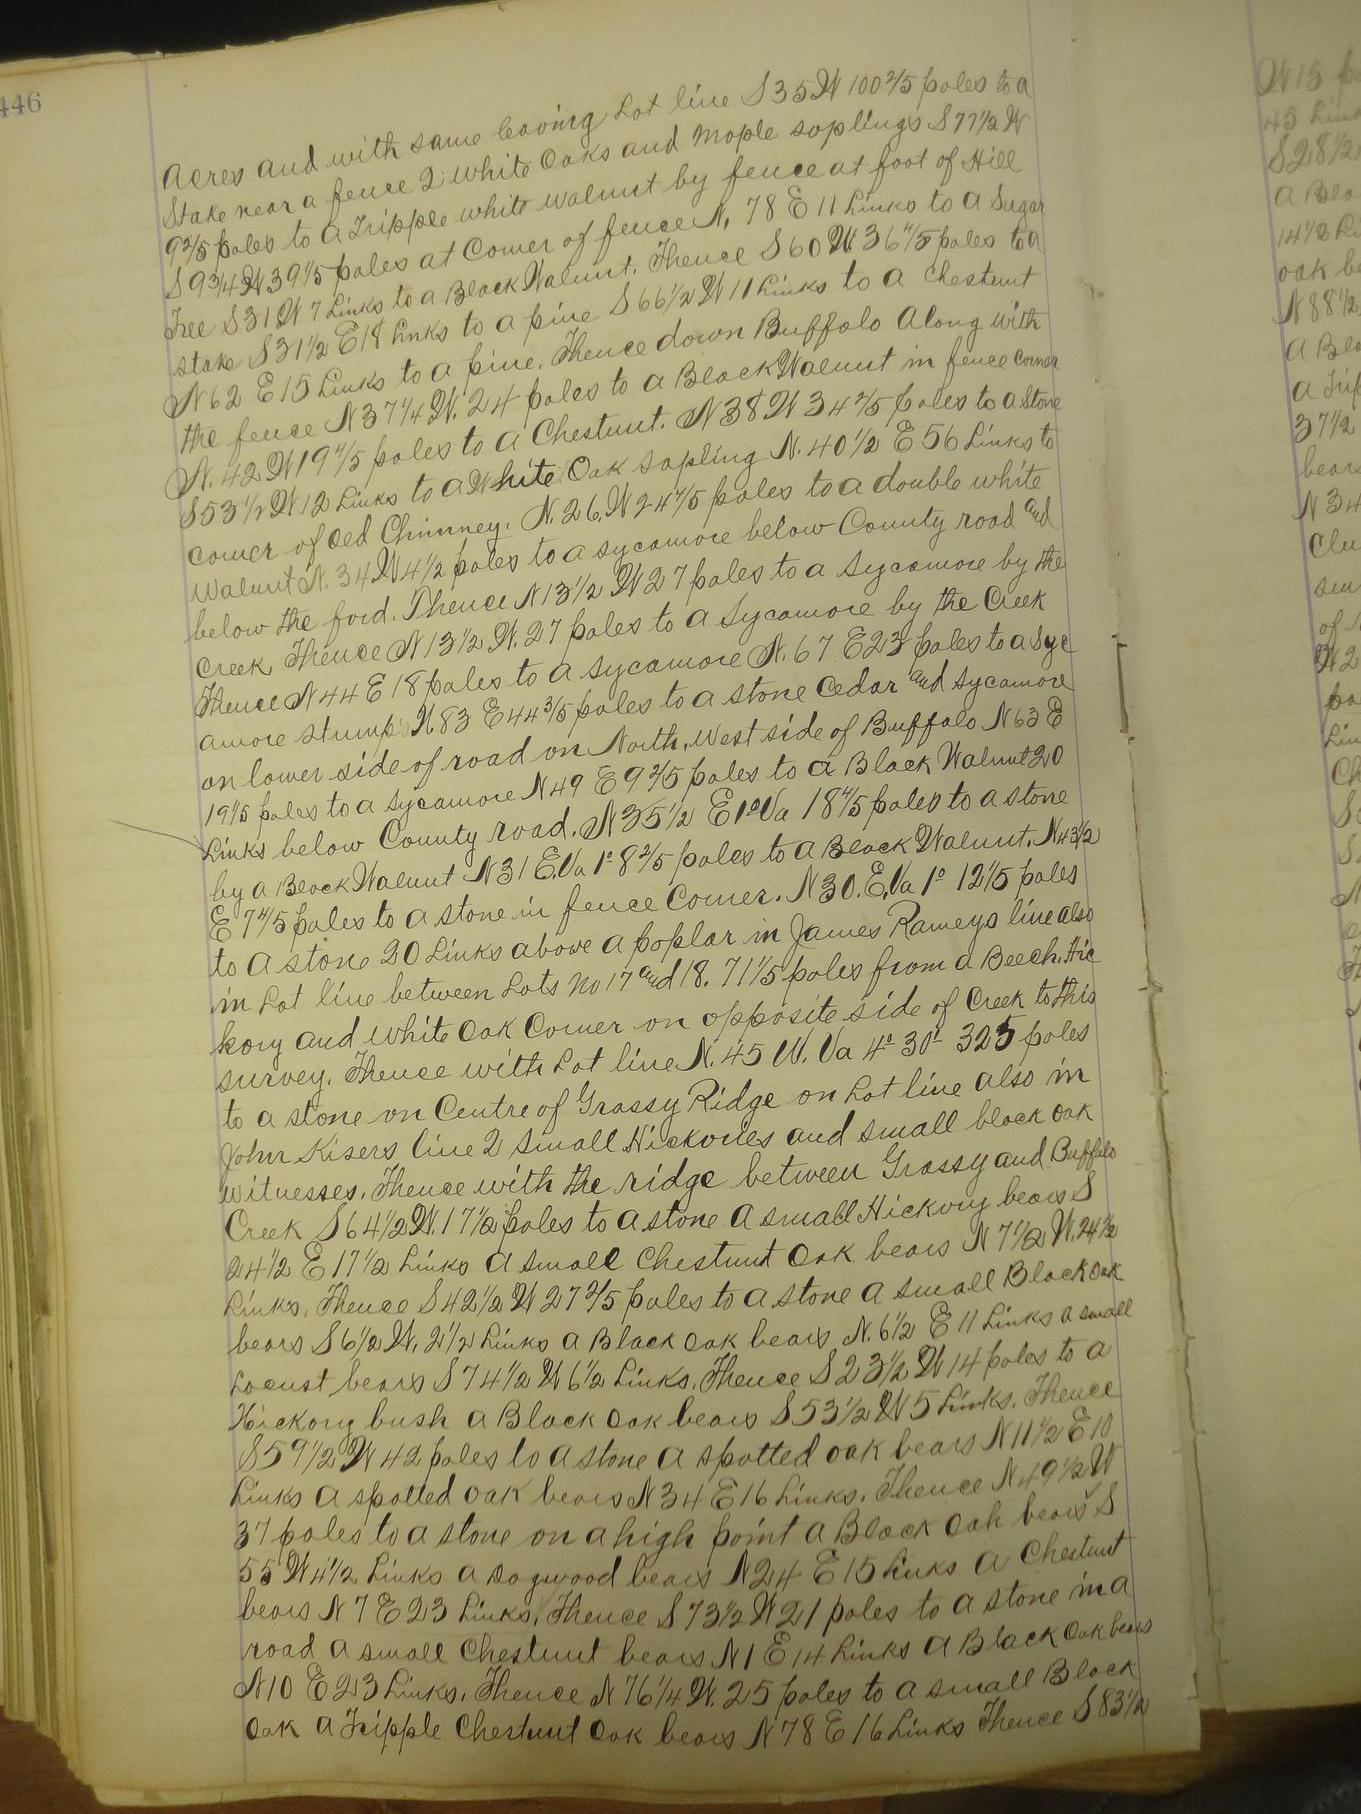 446
Acres and with same leaving Lot line S35W 100 2/5 poles to a
Stake near a fence 2 white Oaks and Maple saplings S 77 1/2 W
9 2/5 poles to a Tripple white walnut by fence at foot of Hill
S 9 3/4 W 39 1/5 poles at Corner of fence N. 78 E 11 Links to a Sugar
Tree S31W 7 Links to a Black Walnut. Thence S60W 36 4/5 poles to a
stake S31 1/2 E18 Links to a pine S66 1/2 W 11 Links to a Chestnut
N62 E15 Links to a pine. Thence down Buffalo Along with
the fence N37 1/4 W. 24 poles to a Black Walnut in fence corner
N. 42 W 19 4/5 poles to a Chestnut. N38W 34 2/5 poles to a Stone
S53 1/2 W12 Links to a White Oak sapling N. 40 1/2 E 56 Links to
corner of Old Chimney. N. 26. W 24 4/5 poles to a double white
Walnut N. 34 W 4 1/2 poles to a sycamore below County road and
below the ford. Thence N13 1/2 W27 poles to a Sycamore by the
Creek Thence N13 1/2 W. 27 poles to a Sycamore by the Creek
Thence N44E 18 poles to a sycamore N. 67 E23 poles to a syc
amore stump N.83 E44 3/5 poles to a stone Cedar and sycamore
on lower side of road on North, West side of Buffalo N63 E
19 1/5 poles to a Sycamore N49 E9 2/5 poles to a Black Walnut 20
Links below County road. N35 1/2 E 1° Va 18 4/5 poles to a stone
by a Black Walnut N31 E. Va 1° 8 2/5 poles to a Black Walnut. N43 1/2
E 7 4/5 poles to a stone in fence Corner. N30. E. Va 1° 12 1/5 poles
to a stone 20 Links above a poplar in James Rameys line also
in Lot line between Lots No 17 and 18. 71 1/5 poles from a Beech, Hic
kory and White Oak Corner on opposite side of Creek to this
survey. Thence with Lot line N. 45 W. Va 4° 30' 325 poles
to a stone on Centre of Grassy Ridge on Lot line also in
John Kisers line 2 small Hickories and small black oak
witnesses. Thence with the ridge between Grassy and Buffalo
Creek S64 1/2 W. 17 1/2 poles to a stone a small Hickory bears S
24 1/2 E 17 1/2 Links a small Chestnut Oak bears N 7 1/2 W. 24 1/2
Links. Thence S42 1/2 W 27 2/5 poles to a stone a small Black oak
bears S6 1/2 W. 2 1/2 Links a Black Oak bears N. 6 1/2 E 11 Links a small
Locust bears S74 1/2 W 6 1/2 Links. Thence S23 1/2 W 14 poles to a
Hickory bush a Black Oak bears S53 1/2 W5 Links. Thence
S59 1/2 W 42 poles to a stone a spotted oak bears N11 1/2 E 10
Links a spotted oak bears N34 E16 Links. Thence N49 1/2 W
37 poles to a stone on a high point a Black Oak bears S
55 W 4 1/2 Links a Dogwood bears N24 E 15 Links a Chestnut
bears N 7 E23 Links. Thence S73 1/2 W 21 poles to a stone in a
road a small Chestnut bears N1 E 14 Links a Black Oak bears
N10 E23 Links. Thence N 76 1/4 W. 25 poles to a small Black
Oak a Tripple Chestnut Oak bears N78 E 16 Links Thence S83 1/2